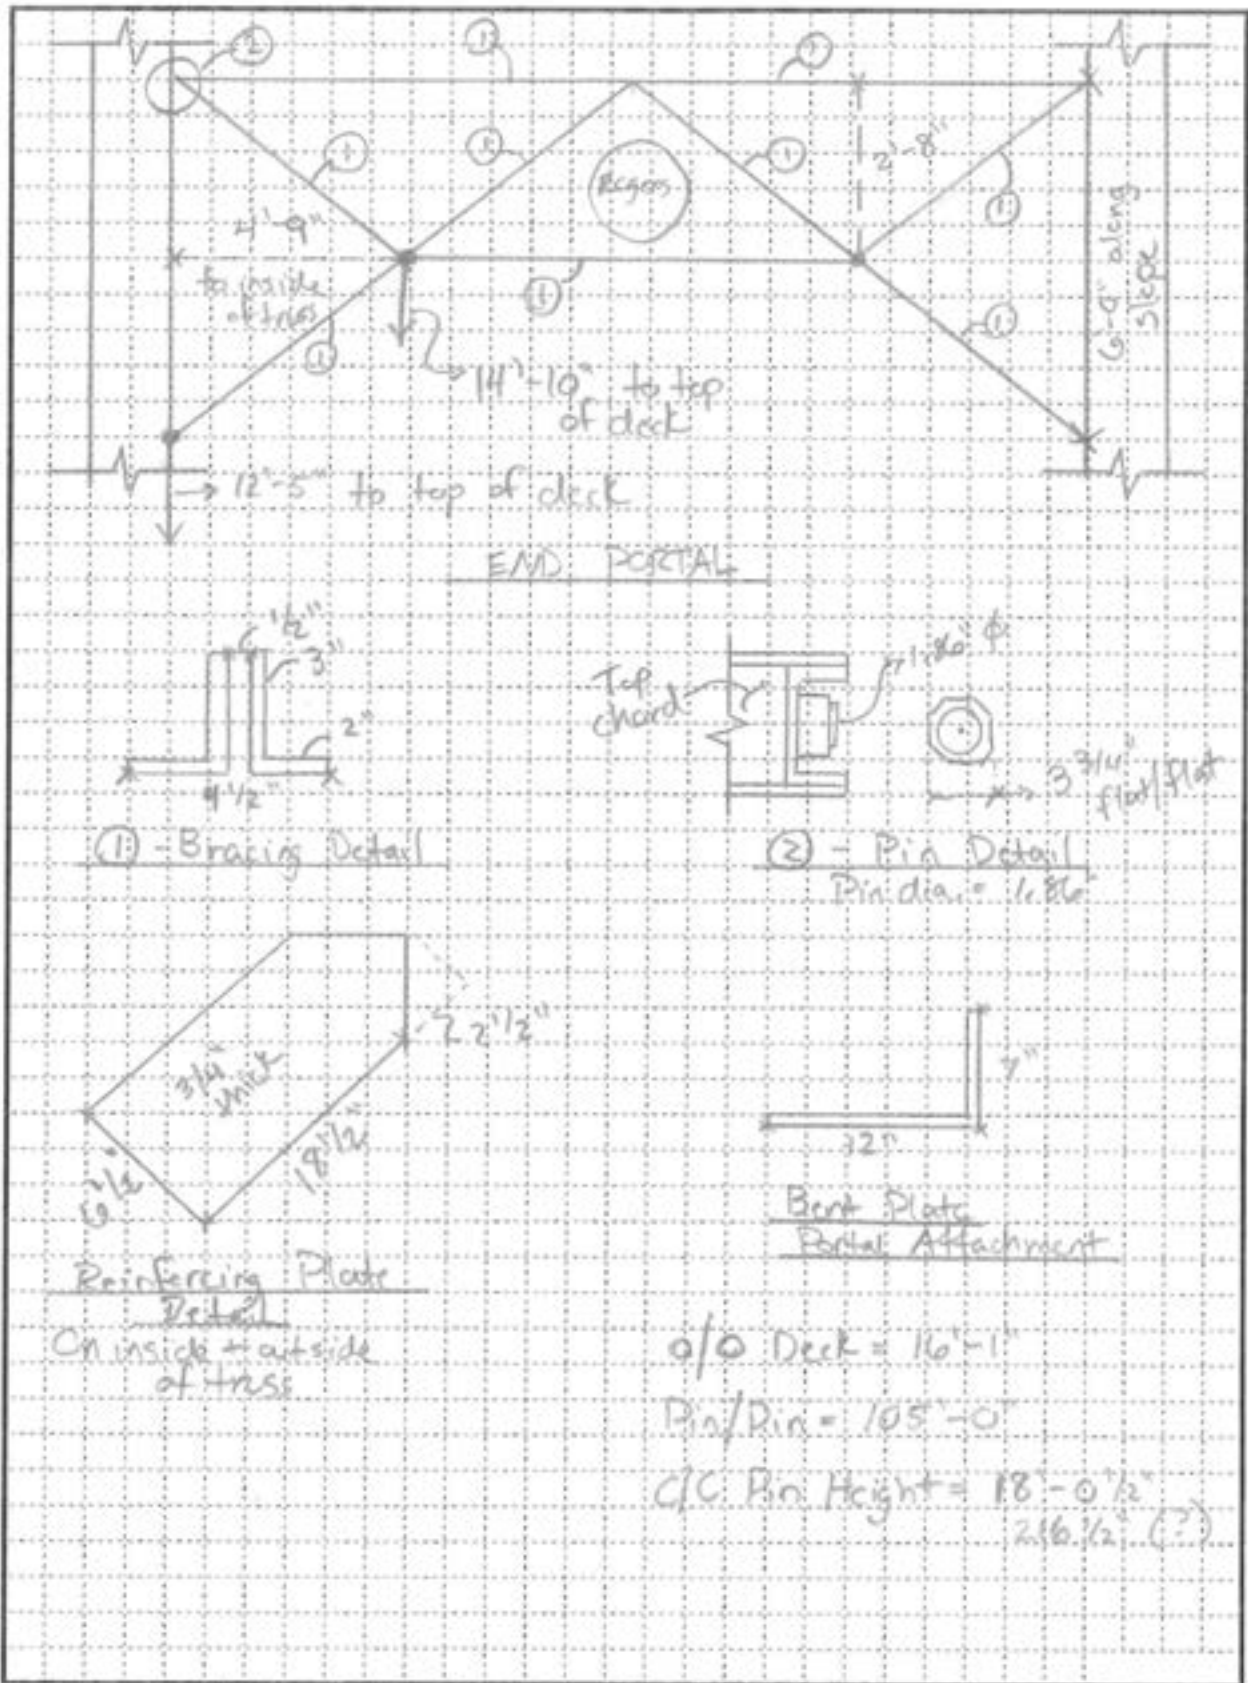 ②
①
①
①
①
①
①
①
①
①
4'-9"
to inside
of truss
2'-8"
6'-9" along
slope
14'-10" to top
of deck
12'-5" to top of deck
END PORTAL
1/2"
3"
2"
4 1/2"
① - Bracing Detail
Top
chord
1.86" ϕ
3 3/4"
flat/flat
② - Pin Detail
Pin dia. = 1.86"
3/4"
thick
2 1/2"
18 1/2"
6 1/2"
Reinforcing Plate
Detail
On inside + outside
of truss
12"
Bent Plate
Portal Attachment
o/o Deck = 16'-1"
Pin/Pin = 105'-0"
C/C Pin Height = 18'-0 1/2"
216 1/2" (?)